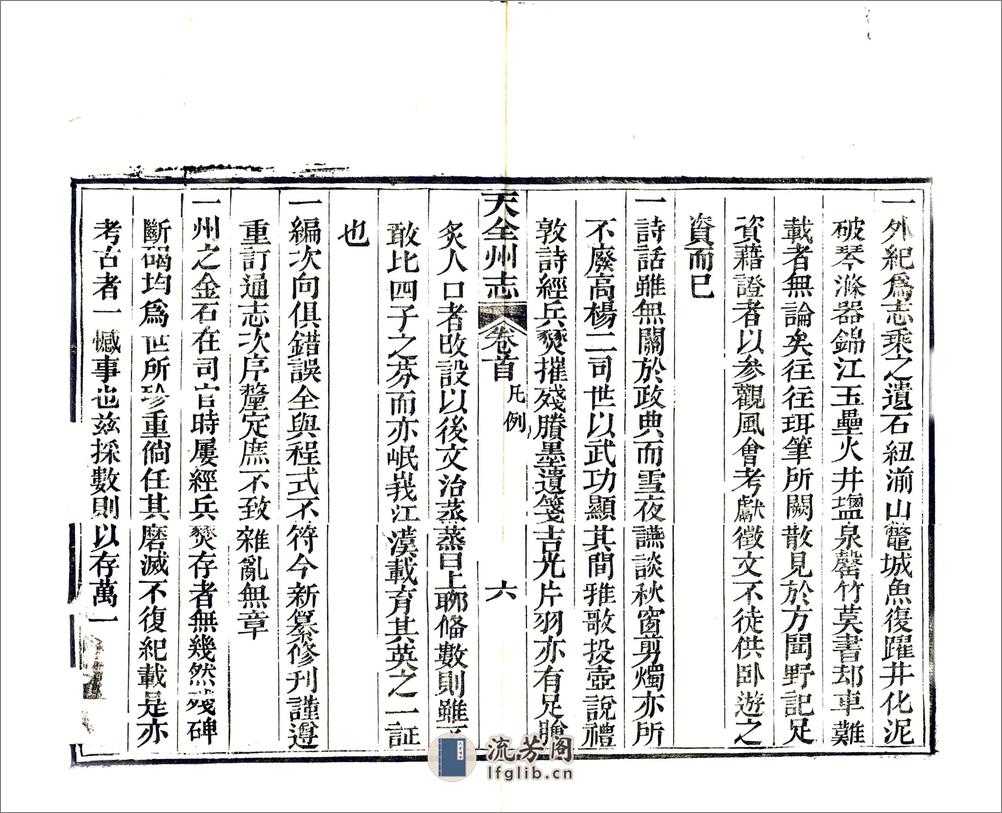 一外紀爲志乘之遺石紐湔山鼈城魚復躍井化泥
破琴滌器錦江玉壘火井鹽泉罄竹莫書却車難
載者無論矣往往珥筆所闕散見於方聞野記足
資藉證者以參觀風會考獻徵文不徒供臥遊之
資而已
一詩話雖無關於政典而雪夜讌談秋窗剪燭亦所
不廢高楊二司世以武功顯其間雅歌投壺說禮
敦詩經兵燹摧殘賸墨遺箋吉光片羽亦有足膾
天全州志 卷首 凡例 六
炙人口者改設以後文治蒸蒸日上聊備數則雖
敢比四子之芬而亦岷峩江漢載育其英之一証
也
一編次向俱錯誤全與程式不符今新纂修刊謹遵
重訂通志次序釐定庶不致雜亂無章
一州之金石在司官時屢經兵燹存者無幾然殘碑
斷碣均爲世所珍重倘任其磨滅不復紀載是亦
考古者一憾事也兹採數則以存萬一
流芳阁
lfglib.cn